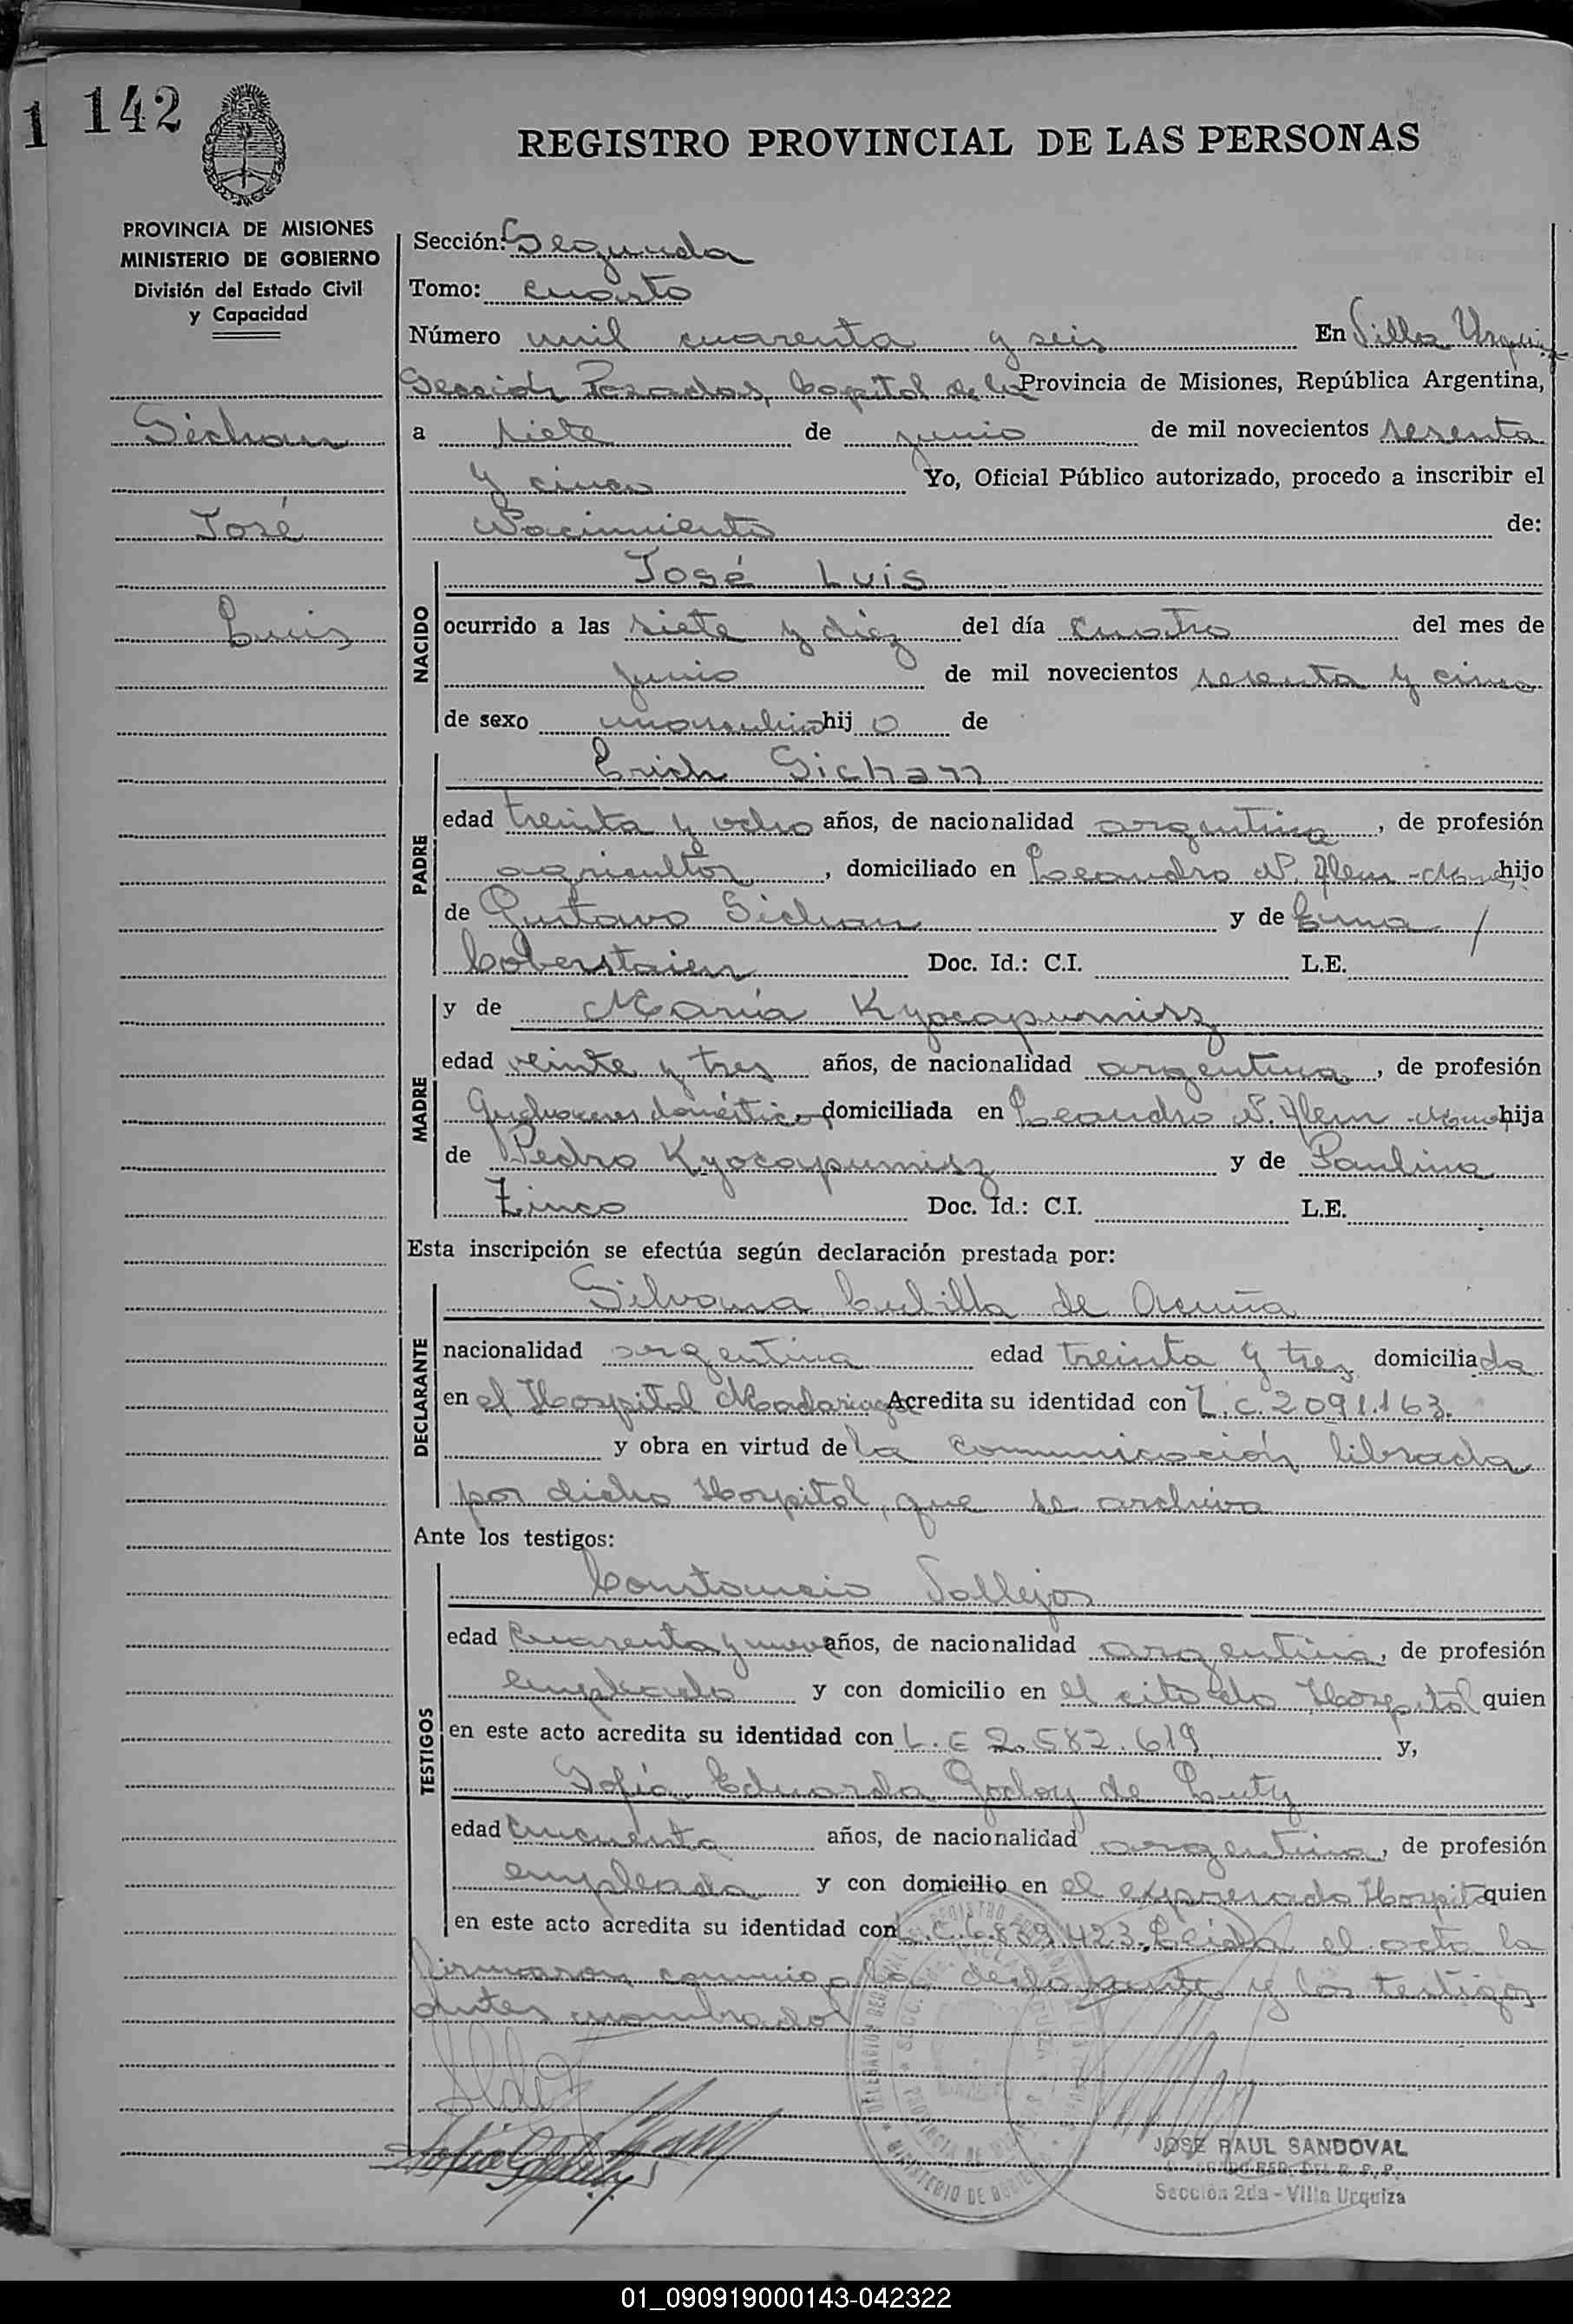 1 142
REGISTRO PROVINCIAL DE LAS PERSONAS
PROVINCIA DE MISIONES
MINISTERIO DE GOBIERNO
División del Estado Civil
y Capacidad
Sichan
José
Luis
Sección: Segunda
Tomo: cuarto
Número mil cuarenta y seis En Villa Urquiza
Sección Posadas, Capital de la Provincia de Misiones, República Argentina,
a siete de junio de mil novecientos sesenta
y cinco Yo, Oficial Público autorizado, procedo a inscribir el
Nacimiento de:
NACIDO
José Luis
ocurrido a las siete y diez del día cuatro del mes de
junio de mil novecientos sesenta y cinco
de sexo masculino hijo de
PADRE
Erich Sichan
edad treinta y ocho años, de nacionalidad argentina, de profesión
agricultor, domiciliado en Leandro N. Alem - hijo
de Gustavo Sichan y de Ema /
Coberstaien Doc. Id.: C.I. L.E.
MADRE
y de María Kyocapumisz
edad veinte y tres años, de nacionalidad argentina, de profesión
Quehaceres domésticos domiciliada en Leandro N. Alem - hija
de Pedro Kyocapumisz y de Paulina
Zinco Doc. Id.: C.I. L.E.
Esta inscripción se efectúa según declaración prestada por:
DECLARANTE
Silvana Cubilla de Acuña
nacionalidad argentina edad treinta y tres domiciliada
en el Hospital Madariaga Acredita su identidad con L.C. 2091.163.
y obra en virtud de la comunicación librada
por dicho Hospital, que se archiva
Ante los testigos:
TESTIGOS
Constancio Vallejos
edad Cuarenta y nueve años, de nacionalidad argentina, de profesión
empleado y con domicilio en el citado Hospital quien
en este acto acredita su identidad con L.E 2.582.619 y,
Sofía Eduarda Godoy de Luty
edad Cincuenta años, de nacionalidad argentina, de profesión
empleada y con domicilio en el expresado Hospital quien
en este acto acredita su identidad con L.C. 6.839.423. Leida el acta la
firmaron conmigo la declarante y los testigos
antes nombrados
JOSE RAUL SANDOVAL
Sección 2da - Villa Urquiza
01_090919000143-042322